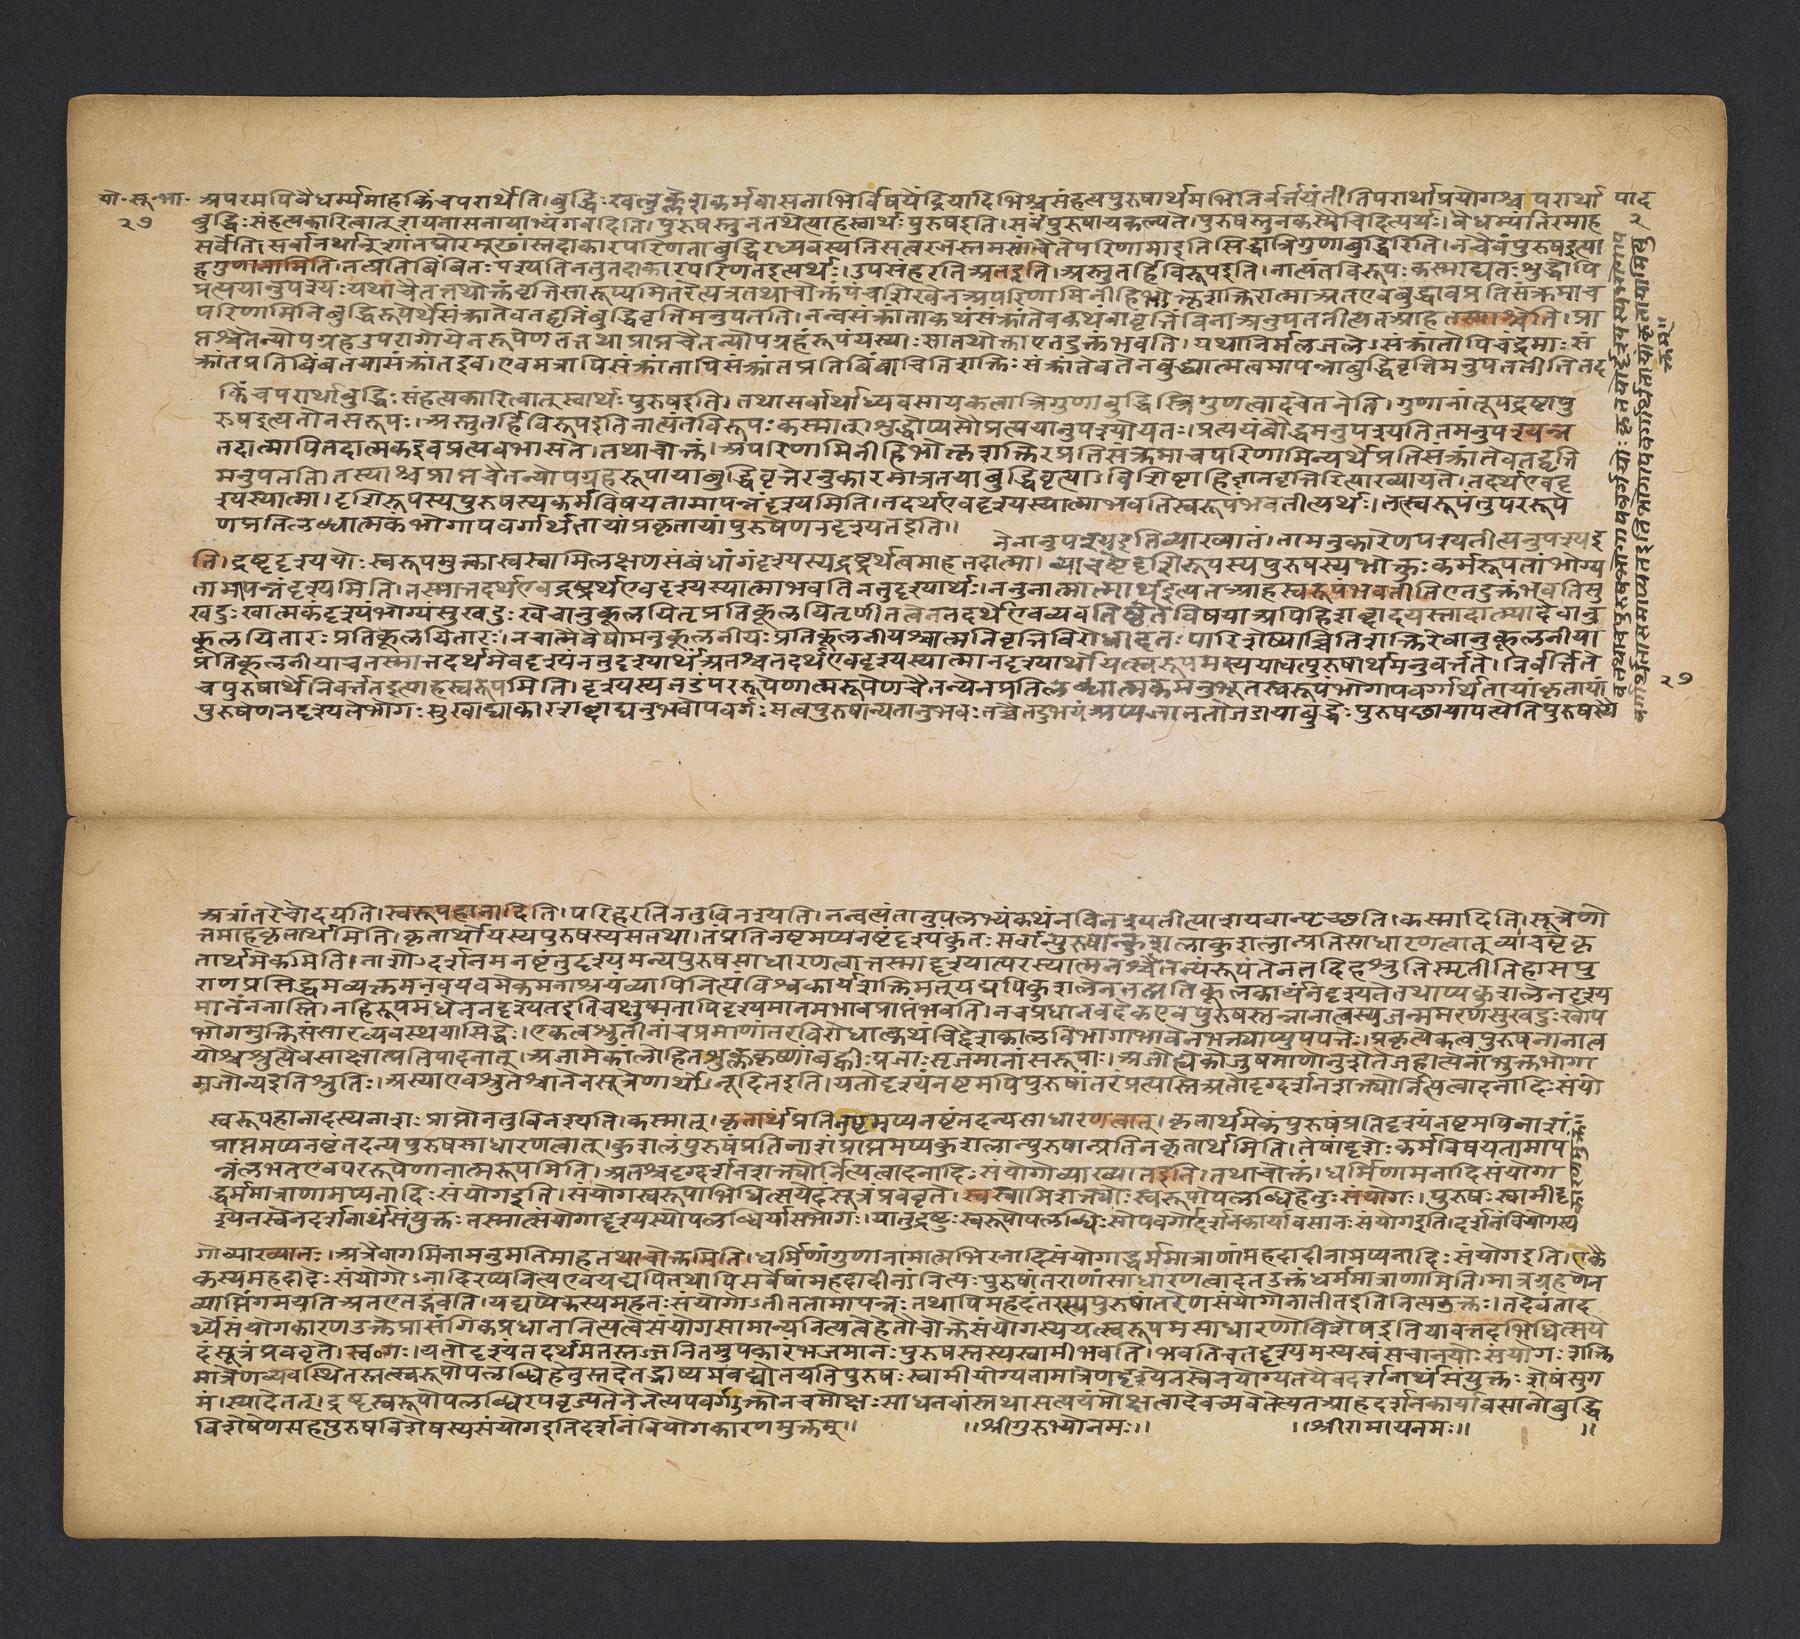 यो॰सू॰भा॰ अपरमपिवैधर्म्यमाहकिंचपरार्थेति।बुद्धिःखलुक्लेशकर्मवासनाभिर्विषयेंद्रियादिभिश्चसंहत्यपुरुषार्थमभिनिर्वर्त्तयंतीतिपरार्थाप्रयोगश्च परार्था पाद
२७ बुद्धिःसंहत्यकारित्वात्शयनासनायाभ्यंगवदिति।पुरुषस्तुनतथेत्याहस्वार्थःपुरुषइति।सर्वंपुरुषायकल्पते।पुरुषस्तुनकस्मैचिदित्यर्थः।वैधर्म्यांतरमाह २
सर्वेति।सर्वानर्थान्शांतघोरमूढांस्तदाकारपरिणताबुद्धिरध्यवस्यतिसत्वरजस्तमसांचैतेपरिणामाइतिसिद्धात्रिगुणाबुद्धिरिति।नचैवंपुरुषइत्या
हगुणानामिति।तत्प्रतिबिंबितःपश्यतिनतुतदाकारपरिणतइत्यर्थः।उपसंहरतिअतइति।अस्तुतर्हिविरूपइति।नात्यंतविरूपःकस्माद्यतःशुद्धोपि
प्रत्ययानुपश्यःयथाचैतत्तथोक्तंवृत्तिसारूप्यमितरत्रेत्यत्रतथाचोक्तंपंचशिखेनअपरिणामिनीहिभोक्तृशक्तिरात्माअतएवबुद्धावप्रतिसंक्रमाच
परिणामिनिबुद्धिरूपेर्थेसंक्रांतेवतद्वृत्तिंबुद्धिवृत्तिमनुपतति।नन्वसंक्रांताकथंसंक्रांतेवकथंवावृत्तिंविनाअनुपततीत्यतआहतस्याश्चेति।प्रा
प्तश्चैतन्योपग्रहउपरागोयेनरूपेणतत्तथाप्राप्तचैतन्योपग्रहंरूपंयस्याःसातथोक्ताएतदुक्तंभवति।यथानिर्मलजलेऽसंक्रांतोपिचंद्रमाःसं
क्रांतप्रतिबिंबतयासंक्रांतइव।एवमत्रापिसंक्रांतापिसंक्रांतप्रतिबिंबाचितिशक्तिःसंक्रांतेवतेनबुद्ध्यात्मत्वमापन्नाबुद्धिवृत्तिमनुपततीतितद
किंचपरार्थाबुद्धिःसंहत्यकारित्वात्स्वार्थःपुरुषइति।तथासर्वार्थाध्यवसायकत्वात्रिगुणाबुद्धिस्त्रिगुणत्वादचेतनेति।गुणानांतूपद्रष्टापु
रुषइत्यतोनसरूपः।अस्तुतर्हिविरूपइतिनात्यंतविरूपःकस्मात्।शुद्धोप्यसौप्रत्ययानुपश्योयतः।प्रत्ययंबौद्धमनुपश्यतितमनुपश्यन्न
तदात्मापितदात्मकइवप्रत्यवभासते।तथाचोक्तं।अपरिणामिनीहिभोक्तृशक्तिरप्रतिसंक्रमाचपरिणामिन्यर्थेप्रतिसंक्रांतेवतद्वृत्ति
मनुपतति।तस्याश्चप्राप्तचैतन्योपग्रहरूपायाबुद्धिवृत्तेरनुकारमात्रतयाबुद्धिवृत्त्याऽविशिष्टाहिज्ञानवृत्तिरित्याख्यायते।तदर्थएवदृ
श्यस्यात्मा।दृशिरूपस्यपुरुषस्यकर्मविषयतामापन्नंदृश्यमिति।तदर्थएवदृश्यस्यात्माभवतिस्वरूपंभवतीत्यर्थः।तत्स्वरूपंतुपररूपे
णप्रतिलब्धात्मकंभोगापवर्गार्थतायांप्रकृतायांपुरुषेणनदृश्यतइति॥
नेनानुपश्यइतिव्याख्यातं।तामनुकारेणपश्यतीत्यनुपश्यइ
ति।द्रष्टृदृश्ययोःस्वरूपमुक्त्वास्वस्वामिलक्षणसंबंधांगंदृश्यस्यद्रष्ट्रर्थत्वमाहतदात्मा।व्याचष्टेदृशिरूपस्यपुरुषस्यभोक्तुःकर्मरूपतांभोग्य
तामापन्नंदृश्यमिति।तस्मात्तदर्थएवद्रष्ट्रर्थएवदृश्यस्यात्माभवतिनतुदृश्यार्थः।ननुनात्मात्मार्थइत्यतआहस्वरूपंभवतीतिएतदुक्तंभवतिसु
खदुःखात्मकंदृश्यंभोग्यंसुखदुःखेचानुकूलयितृप्रतिकूलयितृणीतत्वेनतदर्थएवव्यवतिष्ठेतेविषयाअपिहिशब्दादयस्तादात्म्यादेवानु
कूलयितारःप्रतिकूलयितारः।नचात्मैवैषामनुकूलनीयःप्रतिकूलनीयश्चात्मनिवृत्तिविरोधादतःपारिशेष्याच्चितिशक्तिरेवानुकूलनीया
प्रतिकूलनीयाचतस्मात्तदर्थमेवदृश्यंनतुदृश्यार्थंअतश्चतदर्थएवदृश्यस्यात्मानदृश्यार्थोयत्स्वरूपमस्ययावत्पुरुषार्थमनुवर्त्तते।निर्वर्त्तिते
चपुरुषार्थेनिवर्त्ततइत्याहस्वरूपमिति।दृश्यस्यजडंपररूपेणात्मरूपेणचैतन्येनप्रतिलब्धात्मकमनुभूतस्वरूपंभोगापवर्गार्थतायांकृतायां २७
पुरुषेणनदृश्यतेभोगःसुखाद्याकारशब्दाद्यनुभवोपवर्गःसत्वपुरुषान्यतानुभवःतच्चैतदुभयंअप्यजानतोजडायाबुद्धेःपुरुषछायापत्येतिपुरुषस्यै
अत्रांतरेचोदयति।स्वरूपहानादिति।परिहरतिनतुविनश्यति।नन्वत्यंतानुपलभ्यंकथंनविनश्यतीत्याशयवान्पृच्छति।कस्मादिति।सूत्रेणो
त्तरमाहकृतार्थमिति।कृतार्थोयस्यपुरुषस्यसतथा।तंप्रतिनष्टमप्यनष्टंदृश्यंकुतःसर्वान्पुरुषान्कुशलाकुशलान्प्रतिसाधारणत्वात्व्याचष्टेकृ
तार्थमेकमिति।नाशोऽदर्शनमनष्टंतुदृश्यमन्यपुरुषसाधारणत्वात्तस्माद्दृश्यात्परस्यात्मनश्चैतन्यंरूपंतेनतदिहश्रुतिस्मृतीतिहासपु
राणप्रसिद्धमव्यक्तमनवयवमेकमनाश्रयंव्यापिनित्यंविश्वकार्यशक्तिमत्यद्यपिकुशलेनतंप्रतिकूलकार्यंनदृश्यतेतथाप्यकुशलेनदृश्य
मानंननास्ति।नहिरूपमंधेननदृश्यतइतिचक्षुष्मतापिदृश्यमानमभावप्राप्तंभवति।नचप्रधानवदेकएवपुरुषस्तन्नानात्वस्यजन्ममरणसुखदुःखोप
भोगमुक्तिसंसारव्यवस्थयासिद्धेः।एकत्वश्रुतीनांचप्रमाणांतरविरोधात्कथंचिद्देशकालविभागाभावेनभक्त्याप्युपपत्तेः।प्रकृत्येकत्वपुरुषनानात्व
योश्चश्रुत्यैवसाक्षात्प्रतिपादनात्।अजामेकांलोहितशुक्लकृष्णांबह्वीःप्रजाःसृजमानांसरूपाः।अजोह्येकोजुषमाणोनुशेतेजहात्येनांभुक्तभोगा
मजोन्यइतिश्रुतिः।अस्याएवश्रुतेश्चानेनसूत्रेणार्थोऽनूदितइति।यतोदृश्यंनष्टमपिपुरुषांतरंप्रत्यस्तिअतोदृग्दर्शनशक्त्योर्नित्यत्वादनादिःसंयो
स्वरूपहानादस्यनाशःप्राप्तोनतुविनश्यति।कस्मात्।कृतार्थंप्रतिनष्टमप्यनष्टंतदन्यसाधारणत्वात्।कृतार्थमेकंपुरुषंप्रतिदृश्यंनष्टमपिनाशं
प्राप्तमप्यनष्टंतदन्यपुरुषसाधारणत्वात्।कुशलंपुरुषंप्रतिनाशंप्राप्तमप्यकुशलान्पुरुषान्प्रतिनकृतार्थमिति।तेषांदृशेःकर्मविषयतामाप
न्नंलभतएवपररूपेणानात्मरूपमिति।अतश्चदृग्दर्शनशक्त्योर्नित्यत्वादनादिःसंयोगोव्याख्यातइति।तथाचोक्तं।धर्मिणामनादिसंयोगा
द्धर्ममात्राणामप्यनादिःसंयोगइति।संयोगस्वरूपाभिधित्सयेदंसूत्रंप्रववृते।स्वस्वामिशक्त्योःस्वरूपोपलब्धिहेतुःसंयोगः।पुरुषःस्वामीदृ
श्येनस्वेनदर्शनार्थंसंयुक्तःतस्मात्संयोगाद्दृश्यस्योपलब्धिर्यासभोगः।यातुद्रष्टुःस्वरूपोपलब्धिःसोपवर्गोदर्शनकार्यावसानःसंयोगइति।दर्शनंवियोगस्य
गोव्याख्यातः।अत्रैवागमिनामनुमतिमाहतथाचोक्तमिति।धर्मिणांगुणानामात्मभिरनादिसंयोगाद्धर्ममात्राणांमहदादीनामप्यनादिःसंयोगइति।एकै
कस्यमहदादेःसंयोगोऽनादिरप्यनित्यएवयद्यपितथापिसर्वेषांमहदादीनांनित्यःपुरुषांतराणांसाधारणत्वादतउक्तंधर्ममात्राणामिति।मात्रग्रहणेन
व्याप्तिंगमयतिअतएतद्भवति।यद्यप्येकस्यमहतःसंयोगोऽतीततामापन्नःतथापिमहदंतरस्यपुरुषांतरेणसंयोगोनातीतइतिनित्यउक्तः।तदेवंताद
र्थ्येसंयोगकारणउक्तेप्रासंगिकेप्रधाननित्यत्वेसंयोगसामान्यनित्यत्वेहेतौचोक्तेसंयोगस्ययत्स्वरूपमसाधारणोविशेषइतियावत्तदभिधित्सये
दंसूत्रंप्रववृते।स्व॰गः।यतोदृश्यंतदर्थमतस्तज्जनितमुपकारंभजमानःपुरुषस्तस्यस्वामीभवति।भवतिचतद्दृश्यमस्यस्वंसचानयोःसंयोगःशक्ति
मात्रेणव्यवस्थितस्तत्स्वरूपोपलब्धिहेतुस्तदेतद्भाष्यमवद्योतयतिपुरुषःस्वामीयोग्यतामात्रेणदृश्येनस्वेनयोग्यतयैवदर्शनार्थंसंयुक्तःशेषंसुग
मं।स्यादेतत्।द्रष्टृस्वरूपोपलब्धिरपवृज्यतेनेनेत्यपवर्गउक्तोनचमोक्षःसाधनवांस्तथासत्ययंमोक्षत्वादेवच्यवेतेत्यतआहदर्शनकार्यावसानोबुद्धि
विशेषेणसहपुरुषविशेषस्यसंयोगइतिदर्शनंवियोगकारणमुक्तम्॥ ॥श्रीगुरुभ्योनमः॥ ॥श्रीरामायनमः॥ ॥